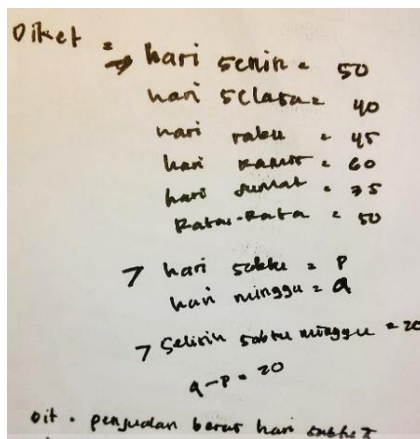 Diket =
→ hari senin = 50
hari selasa = 40
hari rabu = 45
hari kamis = 60
hari jumat = 35
Rata-Rata = 50
→ hari sabtu = P
hari minggu = q
→ Selisih sabtu minggu = 20
q-p = 20
Dit. penjualan beras hari sabtu?